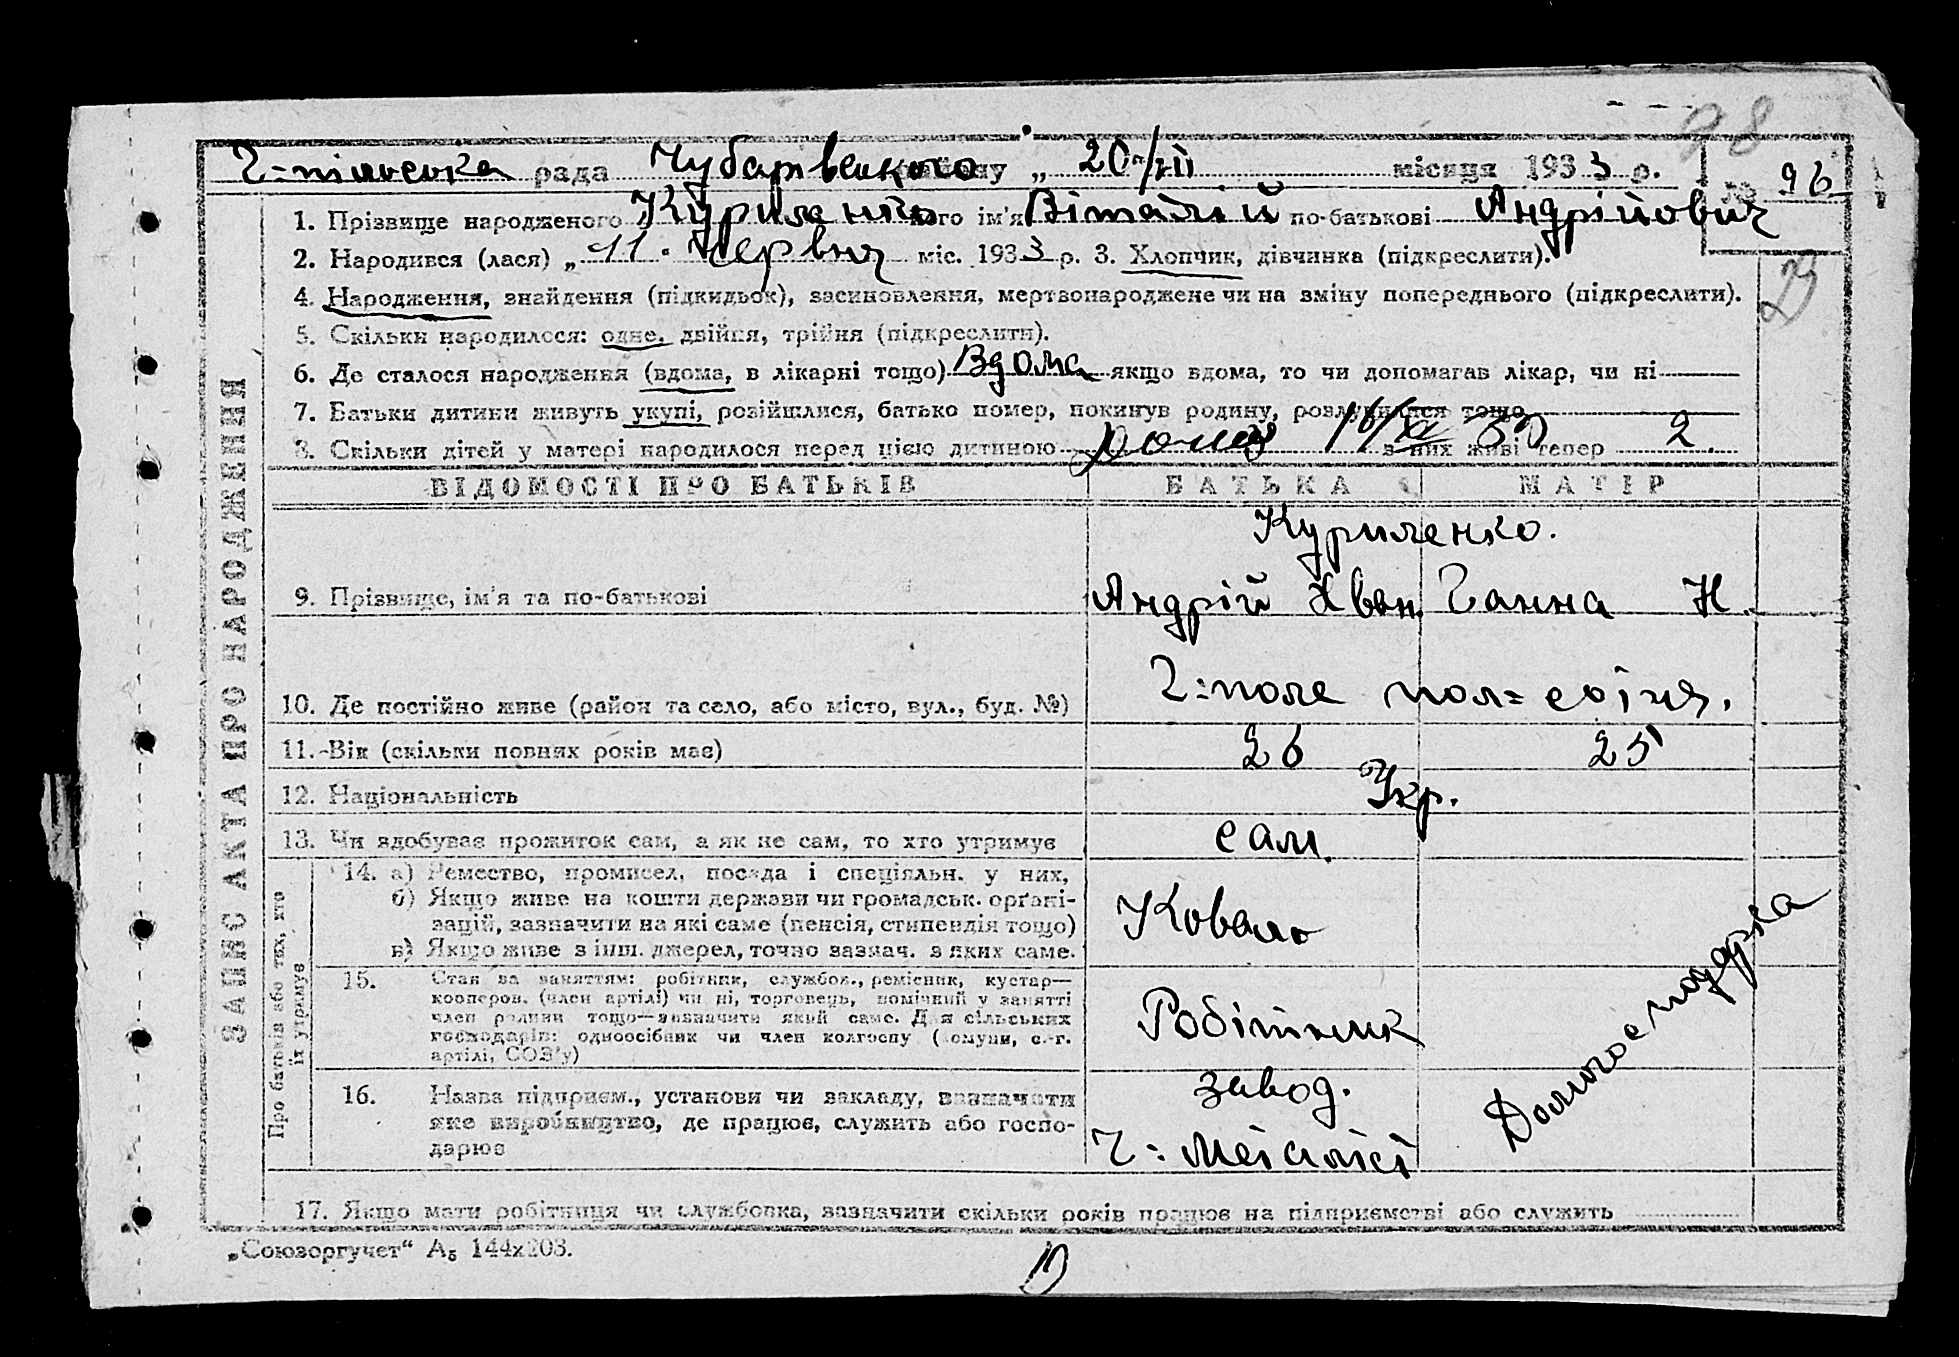 98
Г=пільська рада Чубарівського району „ 20/VII місяця 1933 р. № 96
1. Прізвище народженого Куриленко його ім'я Віталій по-батькові Андрійович
2. Народився (лася) „ 11. червня міс. 1933 р. 3. Хлопчик, дівчинка (підкреслити).
4. Народження, знайдення (підкидьок), засиновлення, мертвонароджене чи на зміну попереднього (підкреслити).
5. Скільки народилося: одне, двійня, трійня (підкреслити).
6. Де сталося народження (вдома, в лікарні тощо) Вдома якщо вдома, то чи допомагав лікар, чи ні
7. Батьки дитини живуть укупі, розійшлися, батько помер, покинув родину, розлучилися тощо
8. Скільки дітей у матері народилося перед цією дитиною 16/XI 30 з них живі тепер 2.
ЗАПИС АКТА ПРО НАРОДЖЕННЯ
ВІДОМОСТІ ПРО БАТЬКІВ БАТЬКА МАТІР
Куриленко.
9. Прізвище, ім'я та по-батькові Андрій Іван. Ганна Н.
10. Де постійно живе (район та село, або місто, вул., буд. №) Г=поле пол=
11. Вік (скільки повних років має) 26 25
12. Національність Укр.
13. Чи здобуває прожиток сам, а як не сам, то хто утримує сам.
Про батьків або тих, хто їх утримує
14. а) Ремество, промисел, посада і спеціяльн. у них,
б) Якщо живе на кошти держави чи громадськ. органі-
зацій, зазначити на які саме (пенсія, стипендія тощо)
в) Якщо живе з інш. джерел, точно зазнач. з яких саме.
Коваль
15. Стан за заняттям: робітник, службов., ремісник, кустар—
кооперов. (член артілі) чи ні, торговець, помічний у занятті
член родини тощо—зазначити який саме. Для сільських
господарів: одноосібник чи член колгоспу (комуни, с.-г.
артілі, СОЗ'у)
Робітник
Домогосподарка
16. Назва підприєм., установи чи закладу, зазначити
яке виробництво, де працює, служить або госпо-
дарює
завод.
17. Якщо мати робітниця чи службовка, зазначити скільки років працює на підприємстві або служить
„Союзоргучет“ А5 144х203.